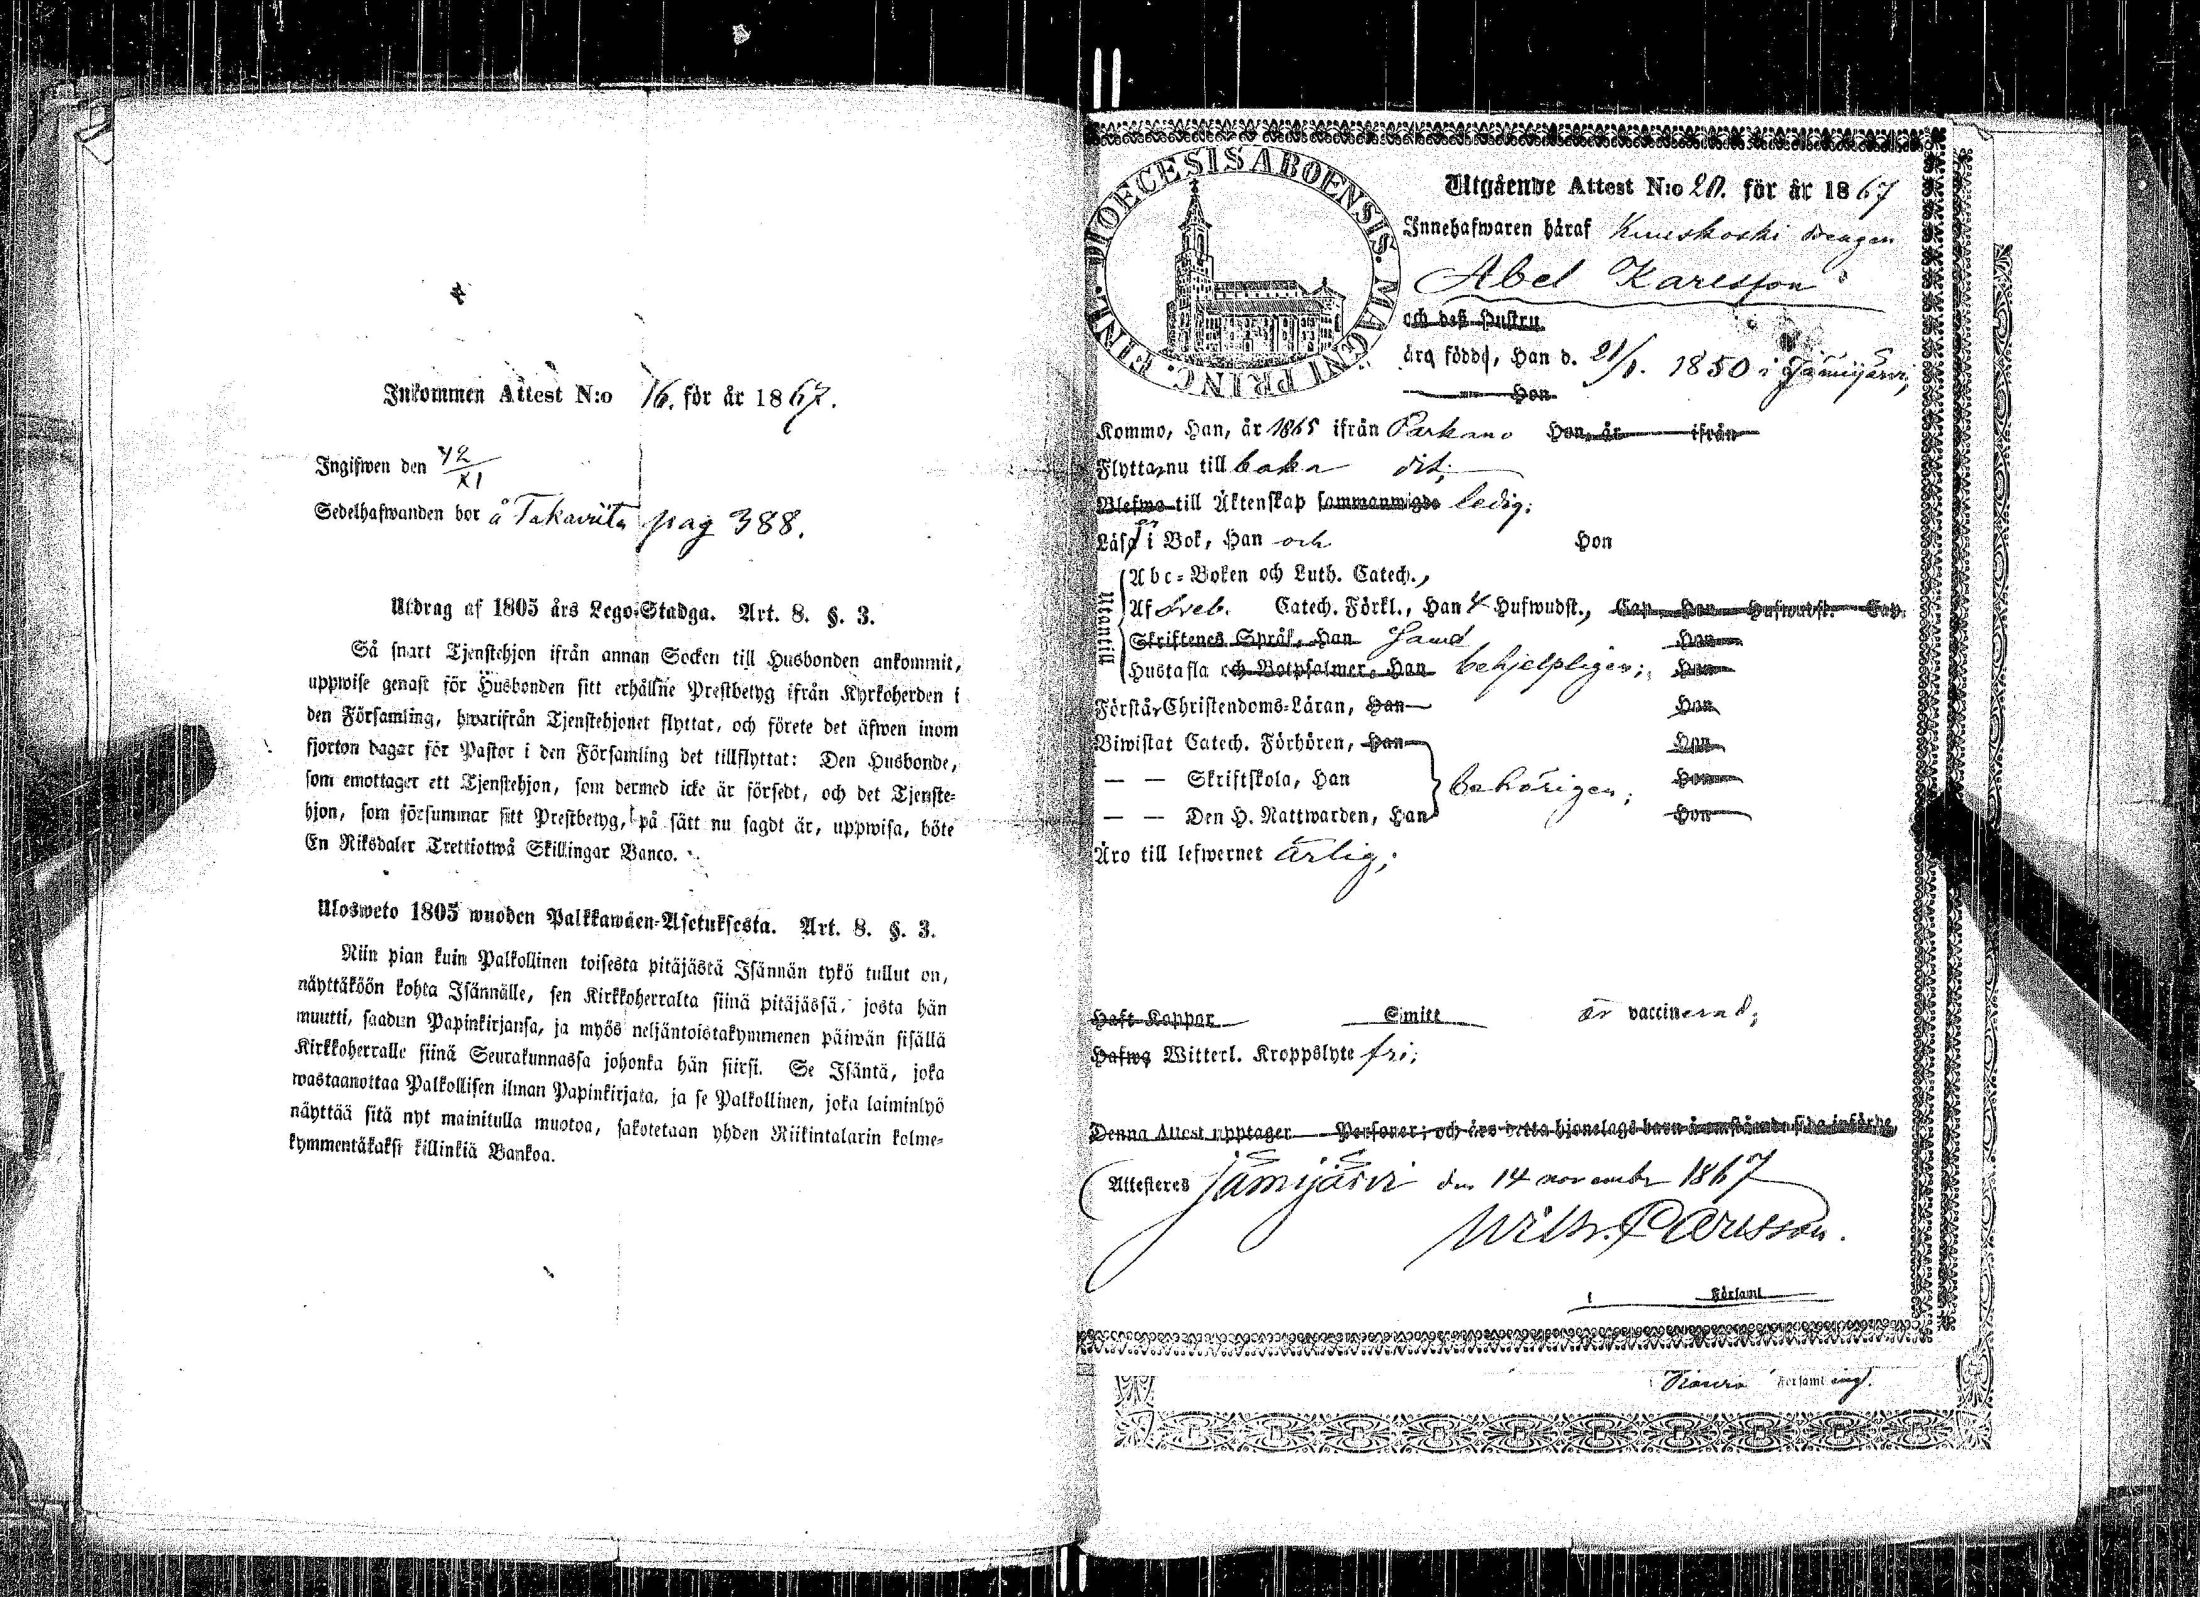 Inkommen Attest N:o 16. för år 1867.
Ingifwen den
Sedelhafwanden bor å Takaviita pag 388.
Utdrag af 1805 års Lego-Stadga. Art. 8. §. 3.
Så snart Tjenstehjon ifrån annan Socken till Husbonden ankommit,
uppwise genast för Husbonden sitt erhållne Prestbetyg ifrån Kyrkoherden i
den Församling, hwarifrån Tjenstehjonet flyttat, och förete det äfwen inom
fjorton dagar för Pastor i den Församling det tillflyttat: Den Husbonde,
som emottager ett Tjenstehjon, som dermed icke är försedt, och det Tjenste-
hjon, som försummar sitt Prestbetyg, på sätt nu sagdt är, uppwisa, böte
En Riksdaler Trettiotwå Skillingar Banco.
Ulosweto 1805 wuoden Palkkawäen-Asetuksesta. Art. 8. §. 3.
Niin pian kuin Palkollinen toisesta pitäjästä Isännän tykö tullut on,
näyttäköön kohta Isännälle, sen Kirkkoherralta siinä pitäjässä, josta hän
muutti, saadun Papinkirjansa, ja myös neljäntoistakymmenen päiwän sisällä
Kirkkoherralle siinä Seurakunnassa johonka hän siirsi. Se Isäntä, joka
wastaanottaa Palkollisen ilman Papinkirjata, ja se Palkollinen, joka laiminlyö
näyttää sitä nyt mainitulla muotoa, sakotetaan yhden Riikintalarin kolme-
kymmentäkaksi killinkiä Bankoa.
DIOECESIS ABOENSIS. MAGNI PRINC. FINL.
Utgående Attest N:o 20. för år 1867
Innehafwaren häraf drengen
Abel Karlsson
och dess Hustru
äro födde, Han d. 21/1. 1850 i Jämijärvi,
Hon
Kommo, Han, år 1865 ifrån Parkano Hon, år ifrån
Flytta nu till baka dit;
Blefwo till Äktenskap sammanwigde ledig;
Läsa i Bok, Han och Hon
Utantill
Abc-Boken och Luth. Catech.,
Af Sveb. Catech. Förkl., Han 4 Hufwudst., Cap. Hon Hufwudst. Cap.
Skriftenes Språk, Han samt Hon
Hustafla och Botpsalmer, Han behjelpligen; Hon
Förstår Christendoms-Läran, Han Hon
Biwistat Catech. Förhören, Han Hon
— — Skriftskola, Han behörigen; Hon
— — Den H. Nattwarden, Han Hon
Äro till lefwernet ärlig;
Haft Koppor Smitt är vaccinerad;
Hafwa Witterl. Kroppslyte fri;
Denna Attest upptager Personer; och äro detta hjonelags barn å omstående sida införde,
Attesteres Jämijärvi den 14 november 1867
Wilh. Carlsson.
i Församl
Församl ing.